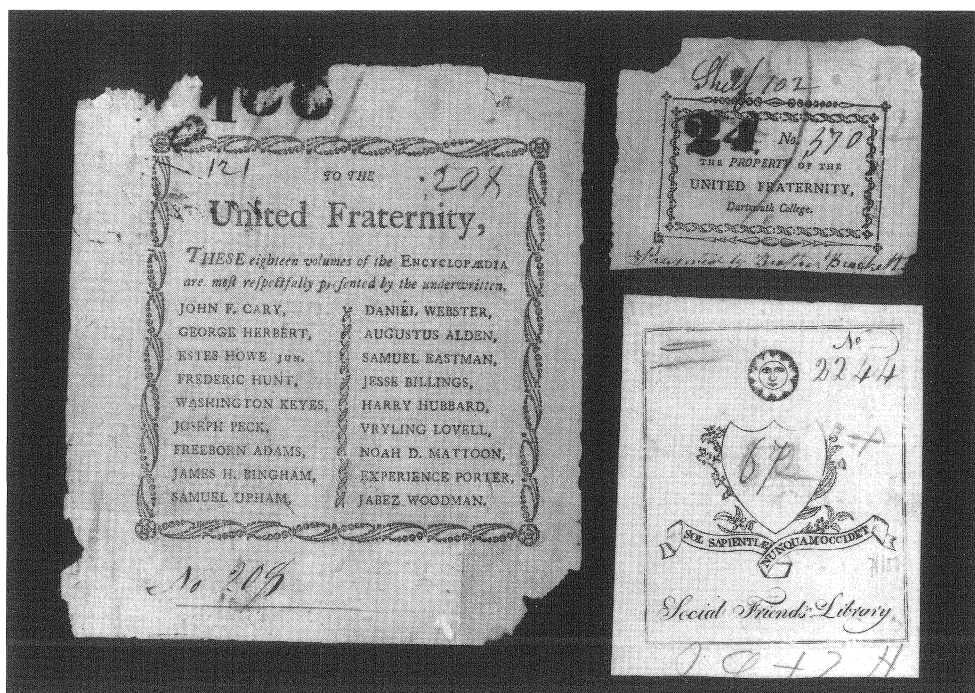 466
121
TO THE
208
United Fraternity,
THESE eighteen volumes of the ENCYCLOPÆDIA
are moſt reſpectfully preſented by the underwritten.
JOHN F. CARY,
GEORGE HERBERT,
ESTES HOWE JUN.
FREDERIC HUNT,
WASHINGTON KEYES,
JOSEPH PECK,
FREEBORN ADAMS,
JAMES H. BINGHAM,
SAMUEL UPHAM,
DANIEL WEBSTER,
AUGUSTUS ALDEN,
SAMUEL EASTMAN,
JESSE BILLINGS,
HARRY HUBBARD,
VRYLING LOVELL,
NOAH D. MATTOON,
EXPERIENCE PORTER,
JABEZ WOODMAN.
No 208
Shelf 102
24. No. 370
THE PROPERTY OF THE
UNITED FRATERNITY,
Dartmouth College.
Presented by Brother Brackett
No
2244
67
SOL SAPIENTIÆ NUNQUAM OCCIDET
Social Friends' Library.